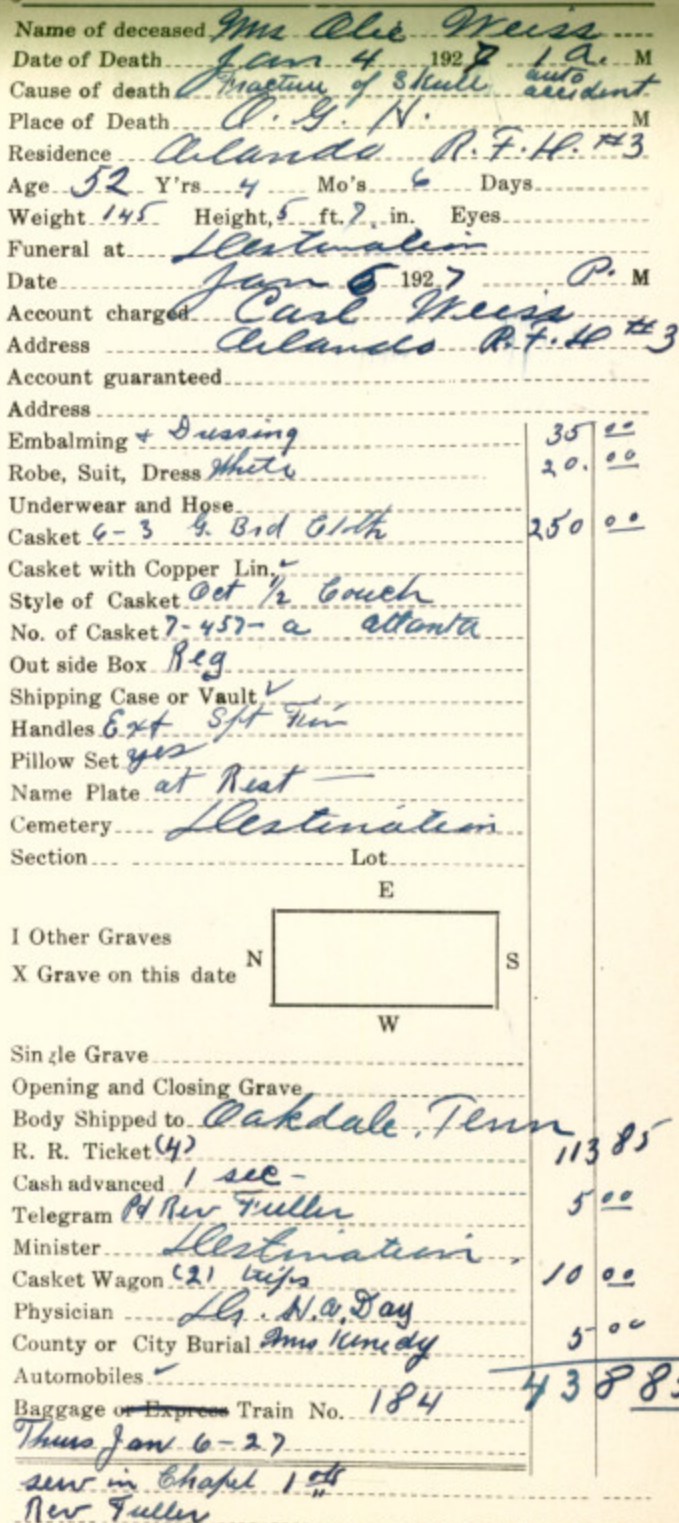 Name of deceased Mrs Olie Weiss
Date of Death Jan 4 1927 1 a. M
Cause of death Fracture of Skull auto accident
Place of Death O. G. H. M
Residence Orlando R. F. D. #3
Age 52 Y'rs 4 Mo's 6 Days
Weight 145 Height, 5 ft. 7 in. Eyes
Funeral at Destination
Date Jan 6 1927 P. M
Account charged Carl Weiss
Address Orlando R. F. D #3
Account guaranteed
Address
Embalming + Dressing 35 00
Robe, Suit, Dress White 20. 00
Underwear and Hose
Casket 6-3 G. Brd Cloth 250 00
Casket with Copper Lin. ✓
Style of Casket Oct 1/2 Couch
No. of Casket 7-457-a Atlanta
Out side Box Reg
Shipping Case or Vault ✓
Handles Ext
Pillow Set yes
Name Plate at Rest —
Cemetery Destination
Section Lot
E
I Other Graves
N S
X Grave on this date
W
Single Grave
Opening and Closing Grave
Body Shipped to Oakdale, Tenn
R. R. Ticket (4) 113 85
Cash advanced 1 sec -
Telegram Pd Rev Fuller 5 00
Minister Destination.
Casket Wagon (2) trips 10 00
Physician Dr. H. A. Day
County or City Burial Mrs Kenedy 5 00
Automobiles ✓ 438 85
Baggage or Express Train No. 184
Thurs Jan 6-27
serv in Chapel 1
Rev Fuller